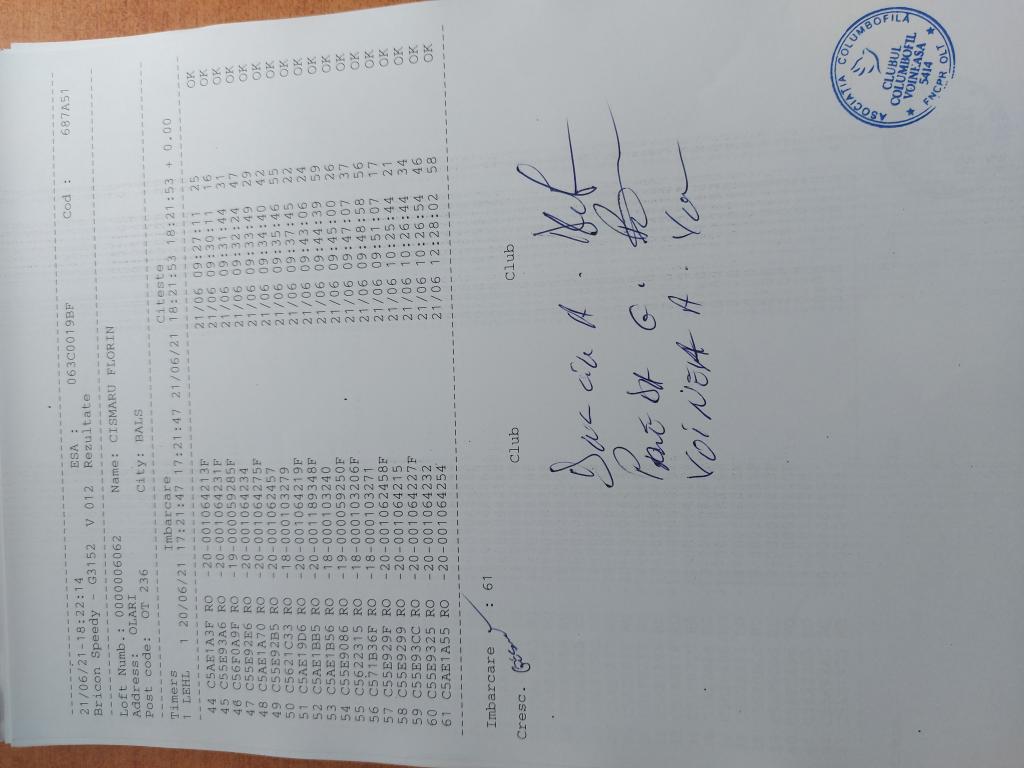 21/06/21-18:22:14 ESA : 063C0019BF Cod : 687A51
Bricon Speedy - G3152 V 012 Rezultate
Loft Numb.: 0000006062 Name: CISMARU FLORIN
Address: OLARI
Post code: OT 236 City: BALS
Imbarcare Citeste
Timers 1 20/06/21 17:21:47 17:21:47 21/06/21 18:21:53 18:21:53 + 0.00
1 LEHL
44 C5AE1A3F RO -20-001064213F 21/06 09:27:11 25 OK
45 C55E93A6 RO -20-001064231F 21/06 09:30:11 16 OK
46 C56F0A9F RO -19-000059285F 21/06 09:31:44 31 OK
47 C55E92E6 RO -20-001064234 21/06 09:32:24 47 OK
48 C5AE1A70 RO -20-001064275F 21/06 09:33:49 29 OK
49 C55E92B5 RO -20-001062457 21/06 09:34:40 42 OK
50 C5621C33 RO -18-000103279 21/06 09:35:46 55 OK
51 C5AE19D6 RO -20-001064219F 21/06 09:37:45 22 OK
52 C5AE1BB5 RO -20-001189348F 21/06 09:43:06 24 OK
53 C5AE1B56 RO -18-000103240 21/06 09:44:39 59 OK
54 C55E9086 RO -19-000059250F 21/06 09:45:00 26 OK
55 C5622315 RO -18-000103206F 21/06 09:47:07 37 OK
56 C571B36F RO -18-000103271 21/06 09:48:58 56 OK
57 C55E929F RO -20-001062458F 21/06 09:51:07 17 OK
58 C55E9299 RO -20-001064215 21/06 10:25:44 21 OK
59 C55E93CC RO -20-001064227F 21/06 10:26:44 34 OK
60 C55E9325 RO -20-001064232 21/06 10:26:54 46 OK
61 C5AE1A55 RO -20-001064254 21/06 12:28:02 58 OK
Imbarcare : 61
Cresc. Club Club
A.
G.
VOINEA A.
ASOCIATIA COLUMBOFILA
CLUBUL
COLUMBOFIL
VOINEASA
5414
FNCPR OLT